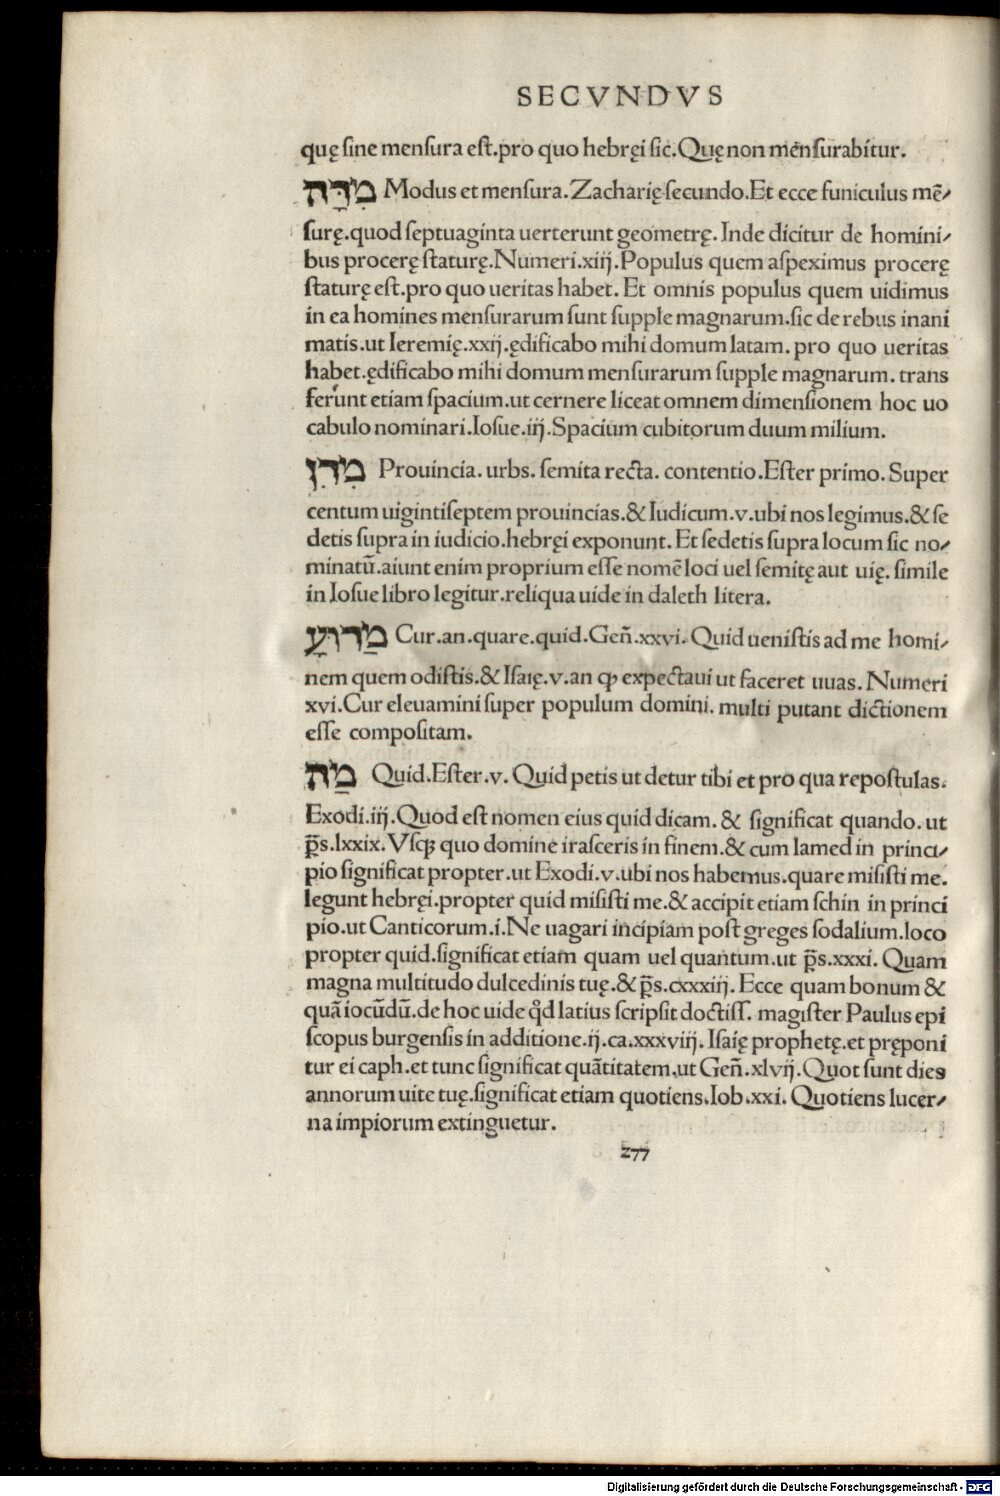 SECVNDVS
quę ſine menſura eſt.pro quo hebręi ſic.Quę non menſurabitur.
מִדָּה Modus et menſura.Zacharię ſecundo.Et ecce funiculus mē⸗
ſurę.quod ſeptuaginta uerterunt geometrę.Inde dicitur de homini⸗
bus procerę ſtaturę.Numeri.xiij.Populus quem aſpeximus procerę
ſtaturę eſt.pro quo ueritas habet. Et omnis populus quem uidimus
in ea homines menſurarum ſunt ſupple magnarum.ſic de rebus inani
matis.ut Ieremię.xxij.ędificabo mihi domum latam. pro quo ueritas
habet.ędificabo mihi domum menſurarum ſupple magnarum. trans
ferunt etiam ſpacium.ut cernere liceat omnem dimenſionem hoc uo
cabulo nominari.Ioſue.iij.Spacium cubitorum duum milium.
מִדִן Prouincia. urbs. ſemita recta. contentio.Eſter primo. Super
centum uigintiſeptem prouincias.& Iudicum.v.ubi nos legimus.& ſe
detis ſupra in iudicio.hebręi exponunt. Et ſedetis ſupra locum ſic no⸗
minatū.aiunt enim proprium eſſe nomē loci uel ſemitę aut uię. ſimile
in Ioſue libro legitur.reliqua uide in daleth litera.
מַדוּעָ Cur.an.quare.quid.Geñ.xxvi. Quid ueniſtis ad me homi⸗
nem quem odiſtis.& Iſaię.v.an ꝙ expectaui ut faceret uuas. Numeri
xvi.Cur eleuamini ſuper populum domini. multi putant dictionem
eſſe compoſitam.
מַה Quid.Eſter.v. Quid petis ut detur tibi et pro qua repoſtulas.
Exodi.iij.Quod eſt nomen eius quid dicam. & ſignificat quando. ut
p̄s.lxxix.Vſqꝫ quo domine iraſceris in finem.& cum lamed in princi⸗
pio ſignificat propter.ut Exodi.v.ubi nos habemus.quare miſiſti me.
legunt hebręi.propter quid miſiſti me.& accipit etiam ſchin in princi
pio.ut Canticorum.i.Ne uagari incipiam poſt greges ſodalium.loco
propter quid.ſignificat etiam quam uel quantum.ut p̄s.xxxi. Quam
magna multitudo dulcedinis tuę.& p̄s.cxxxiij. Ecce quam bonum &
quā iocūdū.de hoc uide qd̄ latius ſcripſit doctiſſ. magiſter Paulus epi
ſcopus burgenſis in additione.ij.ca.xxxviij. Iſaię prophetę.et pręponi
tur ei caph.et tunc ſignificat quātitatem.ut Geñ.xlvij.Quot ſunt dies
annorum uite tuę.ſignificat etiam quotiens.Iob.xxi. Quotiens lucer⸗
na impiorum extinguetur.
277
Digitalisierung gefördert durch die Deutsche Forschungsgemeinschaft - DFG